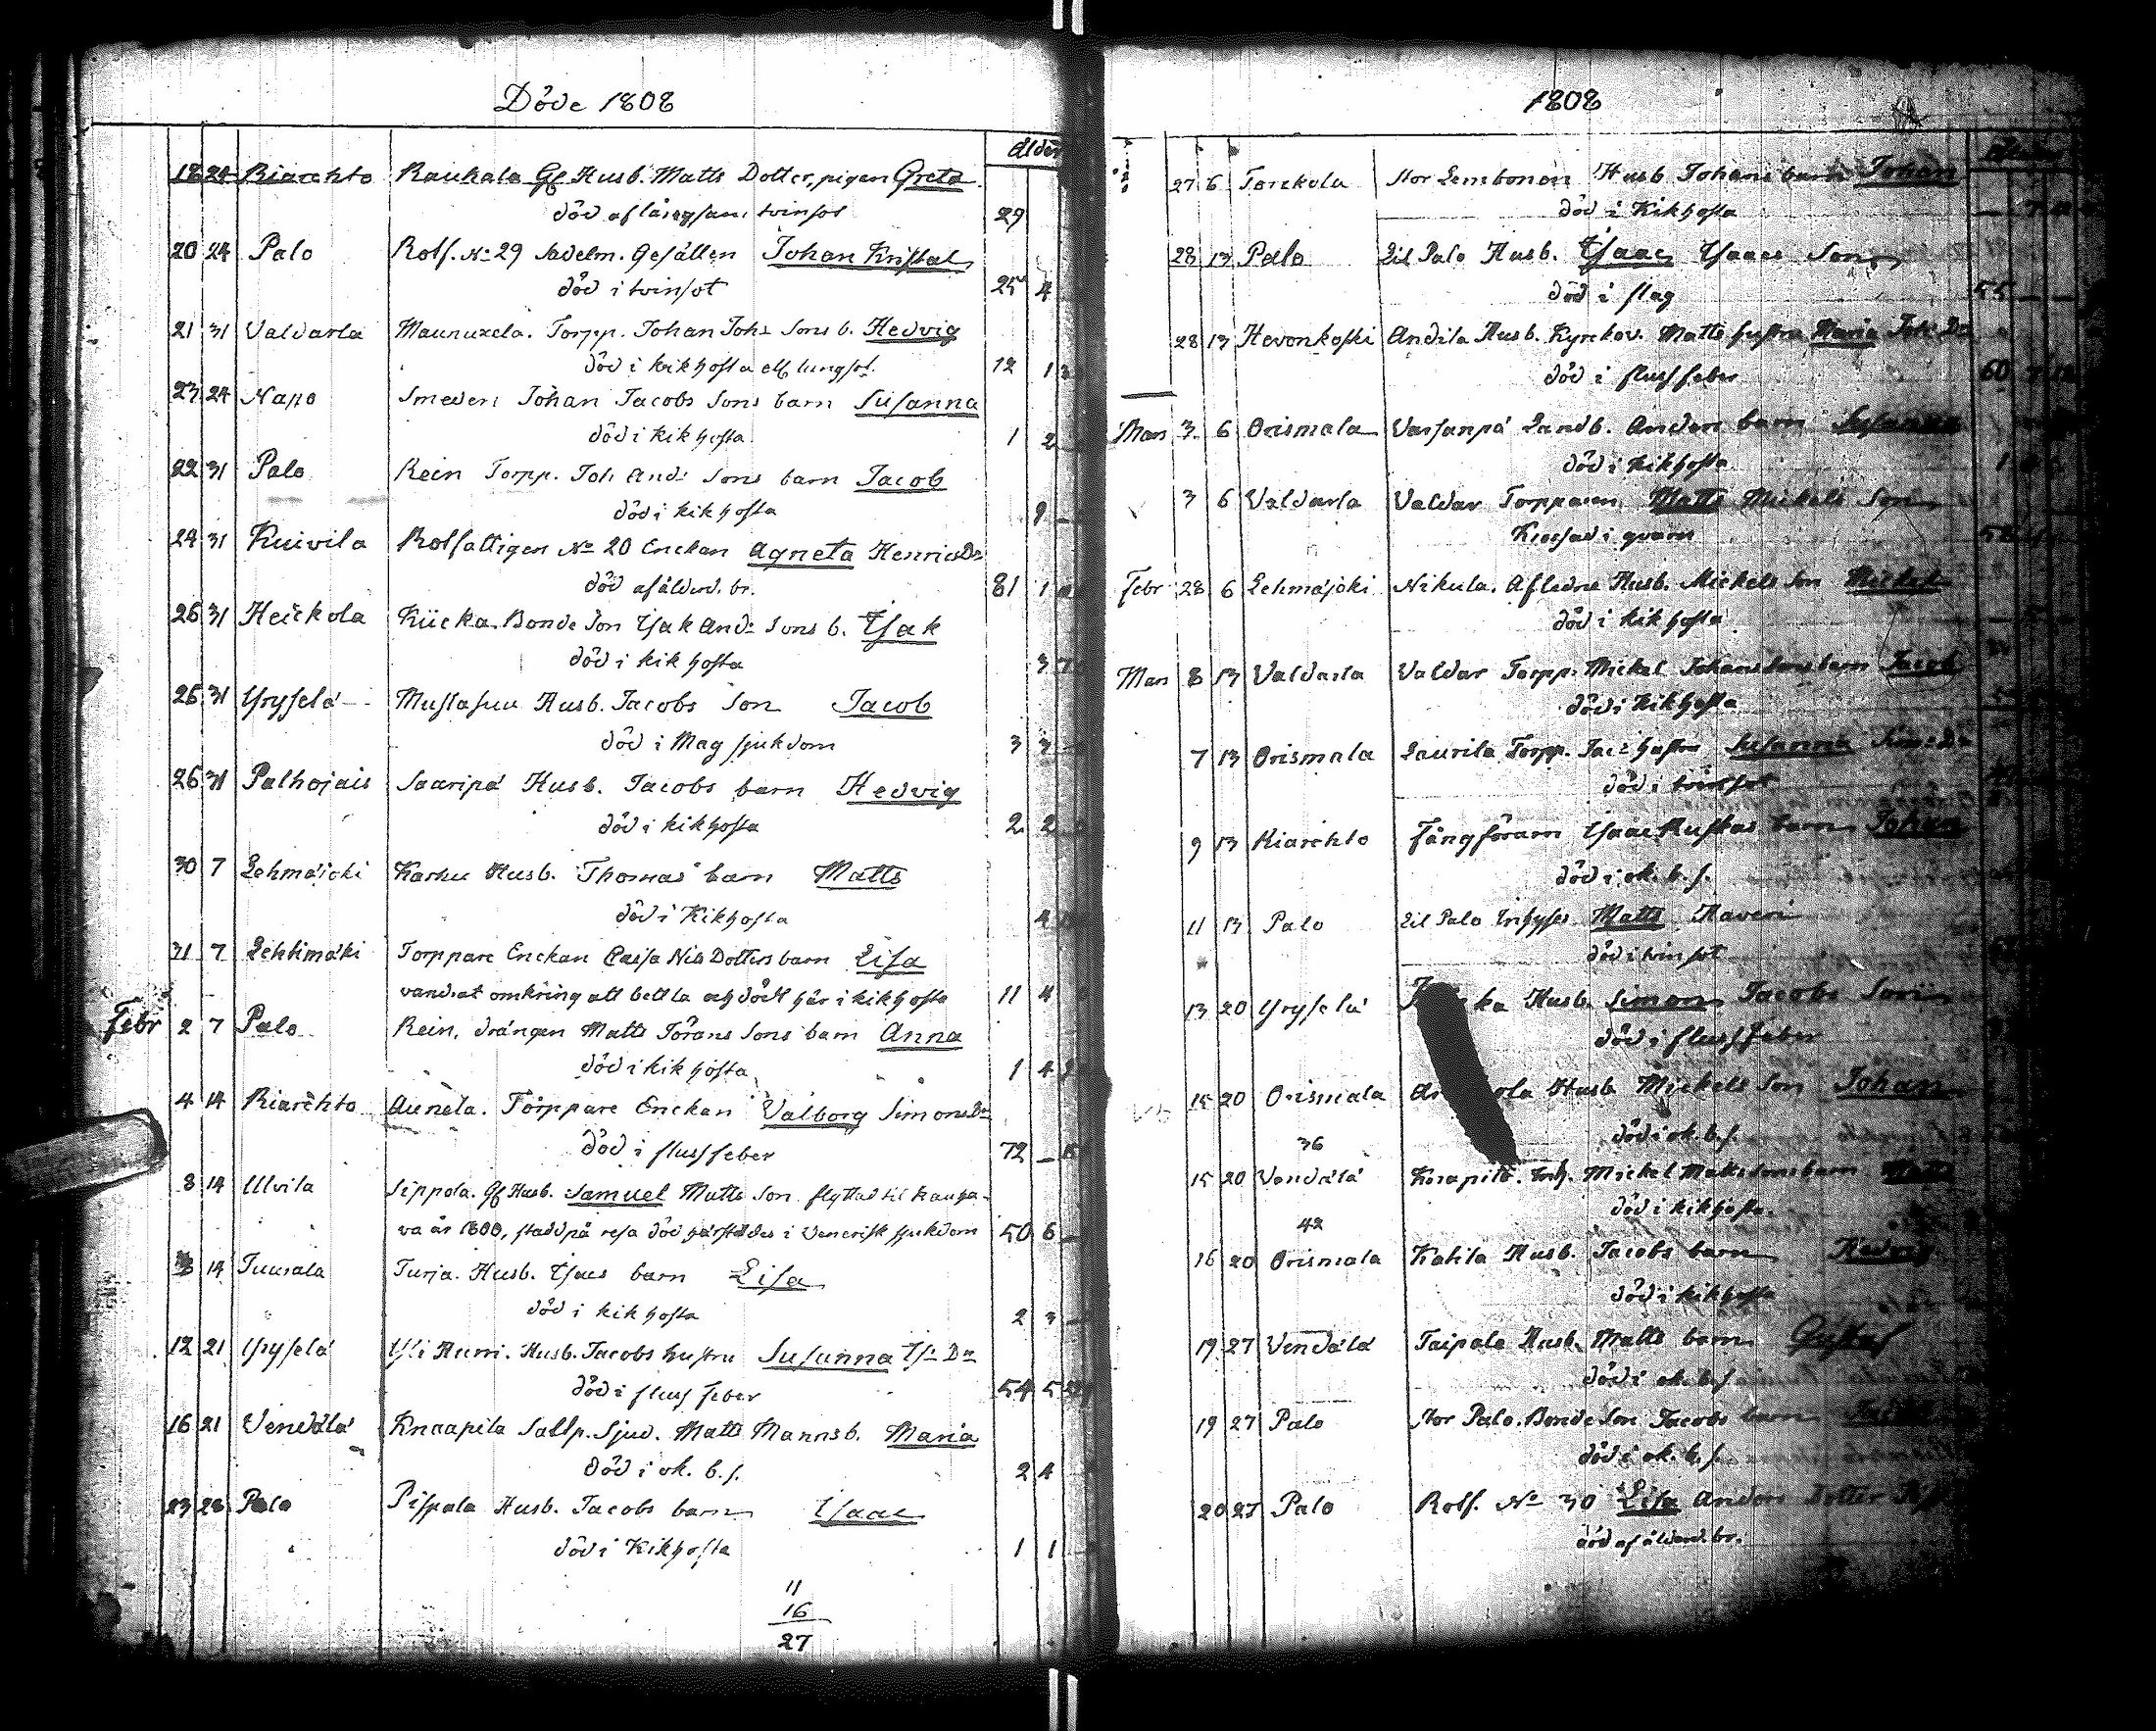 Döde 1808
ålder
18 24 Kiarehto Rauhala Gf Husb. Matts Dotter, pigan Greta
död af långsam tvinsot 29
20 24 Palo Rotf. No 29 Sadelm. Gesällen Johan Kristal
död i tvinsot 25 4
21 31 Valdarla Maunuxela. Torpp. Johan Johs Sons b. Hedvig
död i kikhosta ell. lungsot. 12 1
23 24 Napo Smeden Johan Jacobs Sons barn Susanna
död i kikhosta 1 2
22 31 Palo Rein Torpp. Joh And: Sons barn Jacob
död i kikhosta 9 –
24 31 Kuivila Rotfattigen No 20 Enckan Agneta Henrics Dr
död af ålderd. br. 81 1
26 31 Heickola Kiicka Bonde Son Isak And: Sons b. Isak
död i kikhosta 3 7
26 31 Yryselä Mustasuu Husb. Jacobs Son Jacob
död i Magsjukdom 3 3
26 31 Palhojais Saaripä Husb. Jacobs barn Hedvig
död i kikhosta 2 2
30 7 Lehmäjoki Karhu Husb. Thomas barn Matts
död i Kikhosta 4
31 7 Lehtimäki Torppare Enckan Caisa Nils Dotters barn Lisa
vandrat omkring att bettla och dödt här i kikhosta 11 4
Febr 2 7 Palo Rein, drängen Matts Görans Sons barn Anna
död i kikhosta 1 4
4 14 Kiarehto Aunela. Torppare Enckan Valborg Simons Dr
död i flussfeber 72 –
8 14 Ulvila Sippola. Gf Husb. Samuel Matts Son flyttad til Kauha-
va år 1800, stadd på resa död härstädes i Venerisk sjukdom 50 6 –
14 Tuurala Turja. Husb. Isacs barn Lisa
död i kikhosta 2 3 –
12 21 Yryselä Yli Hurri. Husb. Jacobs hustru Susanna Is: Dr
död i fluss feber 54 5
16 21 Vendälä Knaapila Sattp. Sjud. Matts Manns b. Maria
död i ok. b. s. 2 4
23 28 Palo Pispala Husb. Jacobs barn Isaac
död i Kikhosta 1 1
11
16
27
1808
27 6 Torckola Stor Lembonen Husb. Johans barn Johan
död i Kikhosta
28 13 Palo Lil Palo Husb. Isaac Isaacs Son
död i slag 55 – –
28 13 Hevonkoski Andila Husb. Kyrckov. Matts hustru Maria Joh: Dr
död i flussfeber 60
Mars 3 6 Orismala Varsanpä Landb. Anders barn Susanna
död i kikhosta 1
3 6 Valdarla Valdar Torpparen Matts Mickels Son
Krossad i qvarn
Febr 28 6 Lehmäjoki Nikula. Afledne Husb. Mickels Son Mickel
död i kikhosta
Mars 8 13 Valdarla Valdar Torpp. Mickel Johans Sons barn Jacob
död i kikhosta
7 13 Orismala Laurila Torpp. Jac: hustru Susanna
död i tvinsot
9 13 Kiarehto Fångföraren Isaac barn Johan
död i ok. b. s.
11 13 Palo Lil Palo Inhyses Matts
död i tvinsot
13 20 Yryselä Husb. Simon Jacobs Son
död i flussfeber
15 20 Orismala Husb Mickels Son Johan
död i ok. b. s.
36
15 20 Vendälä Knapila. Inh. Mickel Matts Sons barn Matts
död i kikhosta.
42
16 20 Orismala Katila Husb. Jacobs barn Hedvig
död i kikhosta
19 27 Vendälä Taipale Husb. Matts barn Gustaf
död i ok. b. s.
19 27 Palo Stor Palo. Bonde Son Jacobs barn
död i ok. b. s.
20 27 Palo Rotf. No 30 Lisa Anders Dotter
död af ålderd. br.